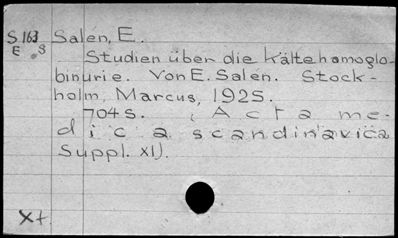 S 163 Salén, E.
E .S
Studien über die Kältehämoglo-
binurie. Von E. Salén. Stock-
holm, Marcus, 1925.
704 S. (Acta me-
dica scandinavica
Suppl. XI).
X t.